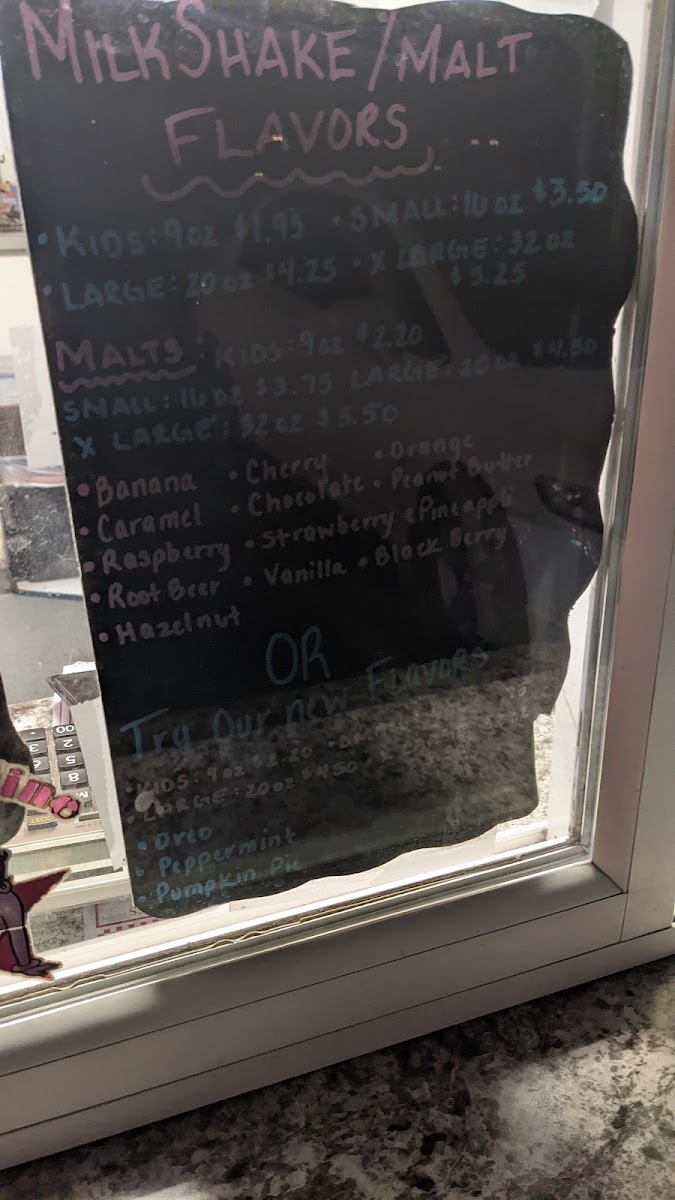 MILKSHAKE/MALT
FLAVORS
• KIDS: 9 oz $1.95 • SMALL: 16 oz $3.50
• LARGE: 20 oz $4.25 • X LARGE: 32 oz
$5.25
MALTS • KIDS: 9 oz $2.20
SMALL: 16 oz $3.75 LARGE: 20 oz $4.50
X LARGE: 32 oz $5.50
• Banana • Cherry • Orange
• Caramel • Chocolate • Peanut Butter
• Raspberry • Strawberry • Pineappl
• Root Beer • Vanilla • Black Berry
• Hazelnut
OR
Try Our new FLAVORS
• KIDS: 9 oz $2.20
• LARGE: 20 oz $4.50
• Oreo
• Peppermint
• Pumpkin Pie